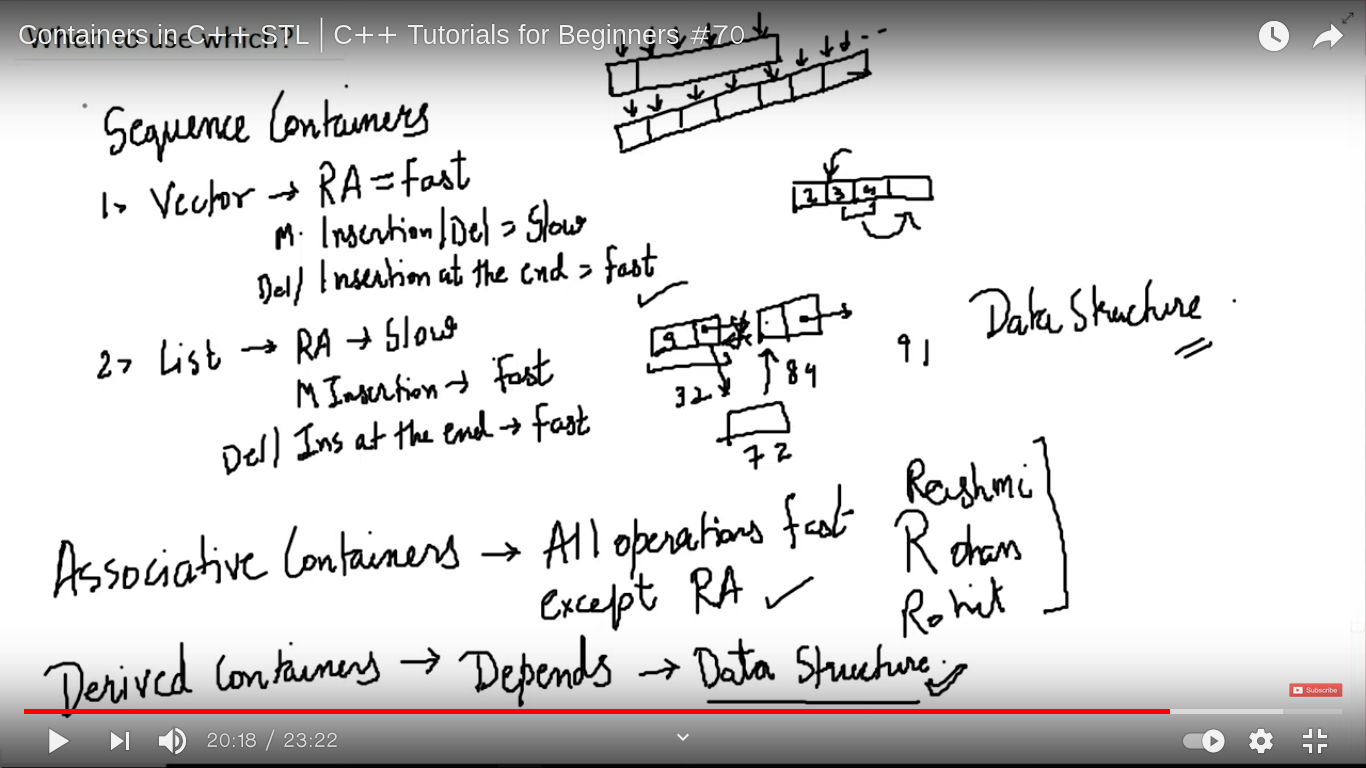 Containers in C++ STL | C++ Tutorials for Beginners #70
When to use which?
Sequence Containers
1> Vector → RA = Fast
M. Insertion/Del = Slow
Del/ Insertion at the end = fast
2> List → RA → Slow
M Insertion → Fast
Del/ Ins at the end → Fast
2 3 4
9
32
84
72
91
Data Structure
Associative Containers → All operations fast
except RA
Rashmi
Rohan
Rohit
Derived Containers → Depends → Data Structure
Subscribe
20:18 / 23:22